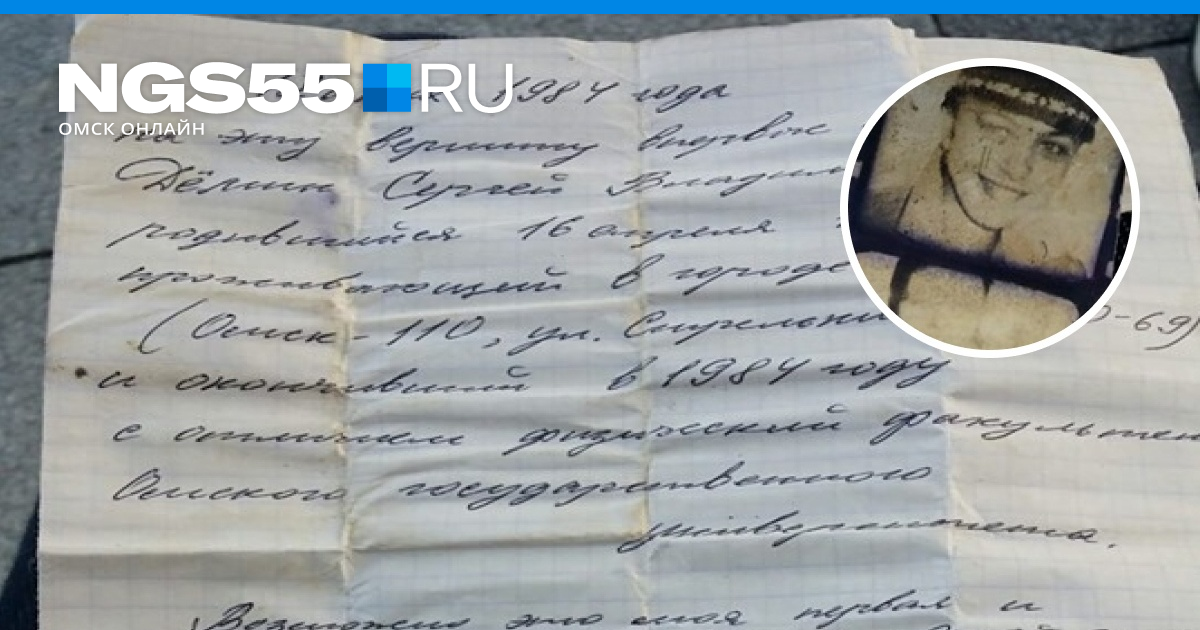 NGS55.RU
ОМСК ОНЛАЙН
1984 года
на эту вершину впервые
Дёмин Сергей Владим
родившийся 16 апреля
проживающий в городе
(Омск-110, ул.
0-69)
и окончивший в 1984 году
с отличием физический факультет
Омского государственного
университета.
Возможно это моя первая и